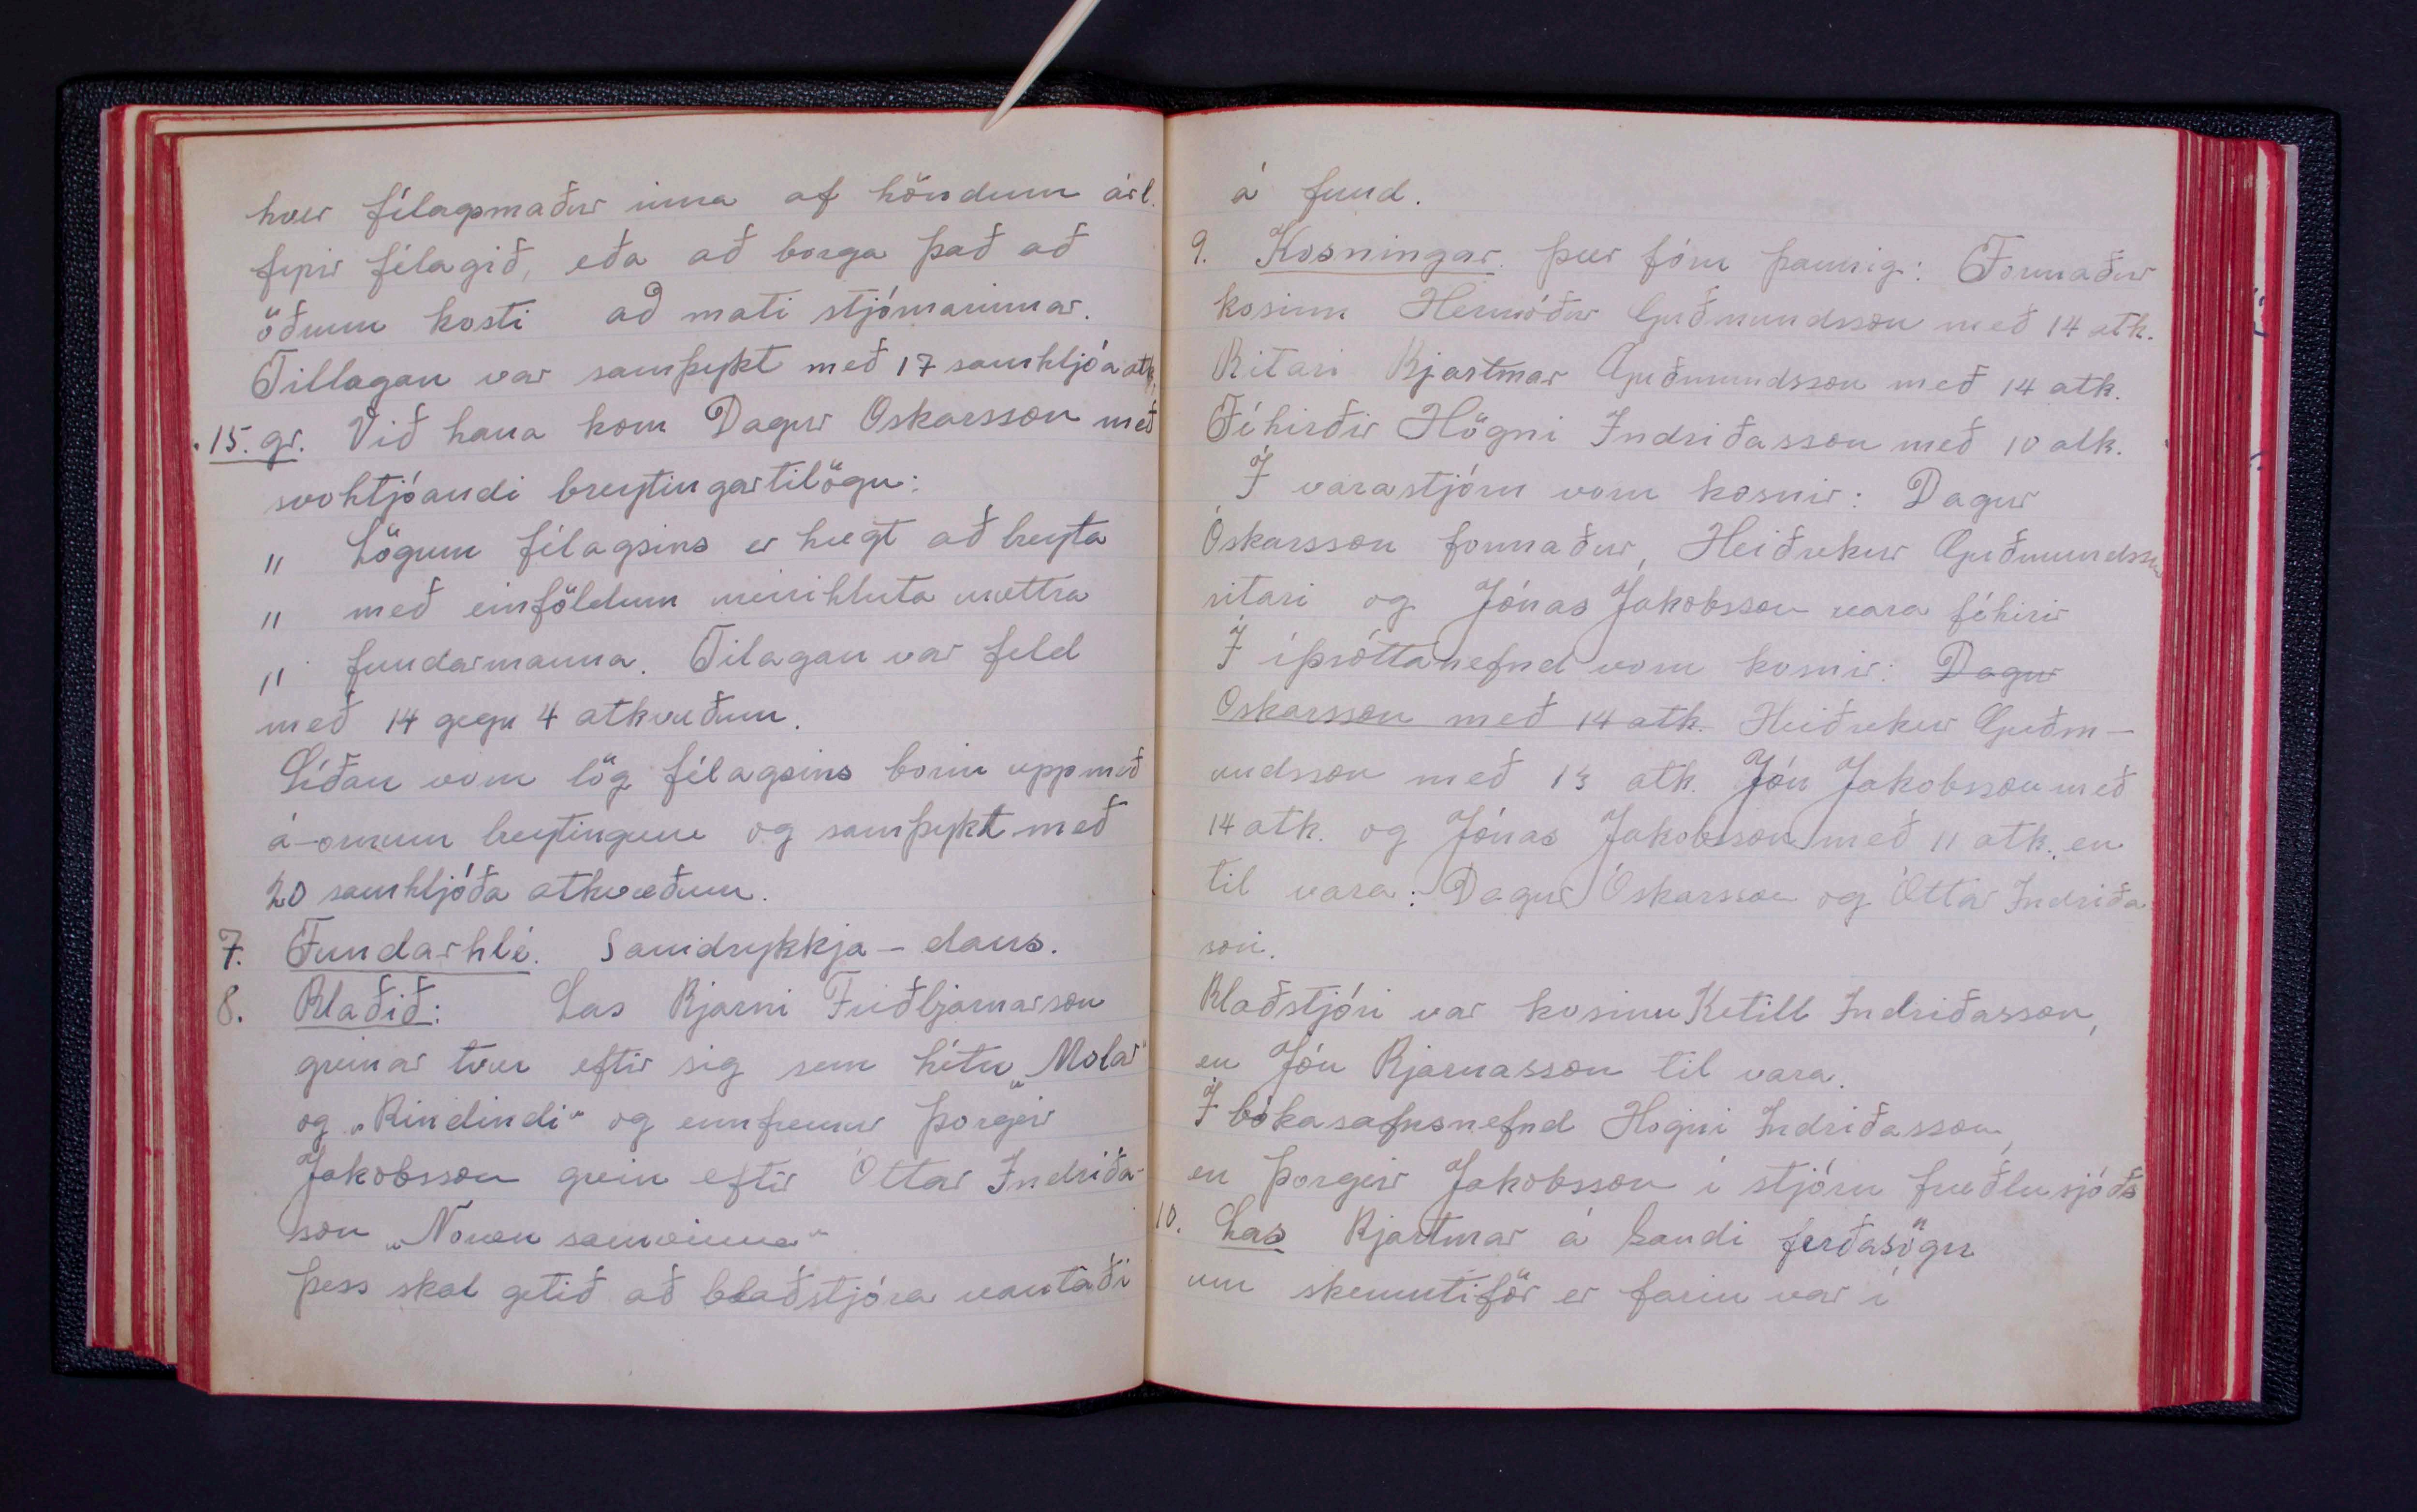 hver félagsmaður inna af höndum árl.
fyrir félagið, eða að borga það að
öðrum kosti að mati stjórnarinnar.
Tillagan var samþykt með 17 samhljóa atk.
15. gr. Við hana kom Dagur Oskarsson með
svohtjóandi breytingartilögu:
„ Lögum félagsins er hægt að breyta
„ með einföldum meirihluta mættra
„ fundarmanna. Tilagan var feld
með 14 gegn 4 atkvæðum.
Síðan voru lög félagsins borin upp með
á-ornum breytingum og samþykt með
20 samhljóða atkvæðum.
7. Fundarhlé. Samdrykkja - dans.
8. Blaðið: Las Bjarni Friðbjarnarson
greinar tvær eftir sig sem hétu „Molar"
og „Bindindi" og ennfremur Þorgeir
Jakobsson grein eftir Óttar Indriða-
son „Noren samvinna"
Þess skal getið að blaðstjóra vantaði
á fund.
9. Kosningar. þær fóru þannig: Formaður
kosinn Hermóður Guðmundsson með 14 atk.
Ritari Bjartmar Guðmundsson með 14 atk.
Féhirðir Högni Indriðasson með 10 atk.
Í varastjórn voru kosnir: Dagur
Óskarsson formaður, Heiðrekur Guðmundsson
ritari og Jónas Jakobsson vara féhirir
Í íþróttanefnd voru kosnir: Dagur
Oskarsson með 14 atk. Heiðrekur Guðm-
undsson með 13 atk. Jón Jakobsson með
14 atk. og Jónas Jakobsson með 11 atk., en
til vara: Dagur Óskarsson og Óttar Indriða
son.
Blaðstjóri var kosinn Ketill Indriðasson,
en Jón Bjarnasson til vara.
Í bókasafnsnefnd Hogni Indriðasson,
en Þorgeir Jakobsson í stjórn fræðlusjóðs
10. Las Bjartmar á Sandi ferðasögu
um skemmtiför er farin var í